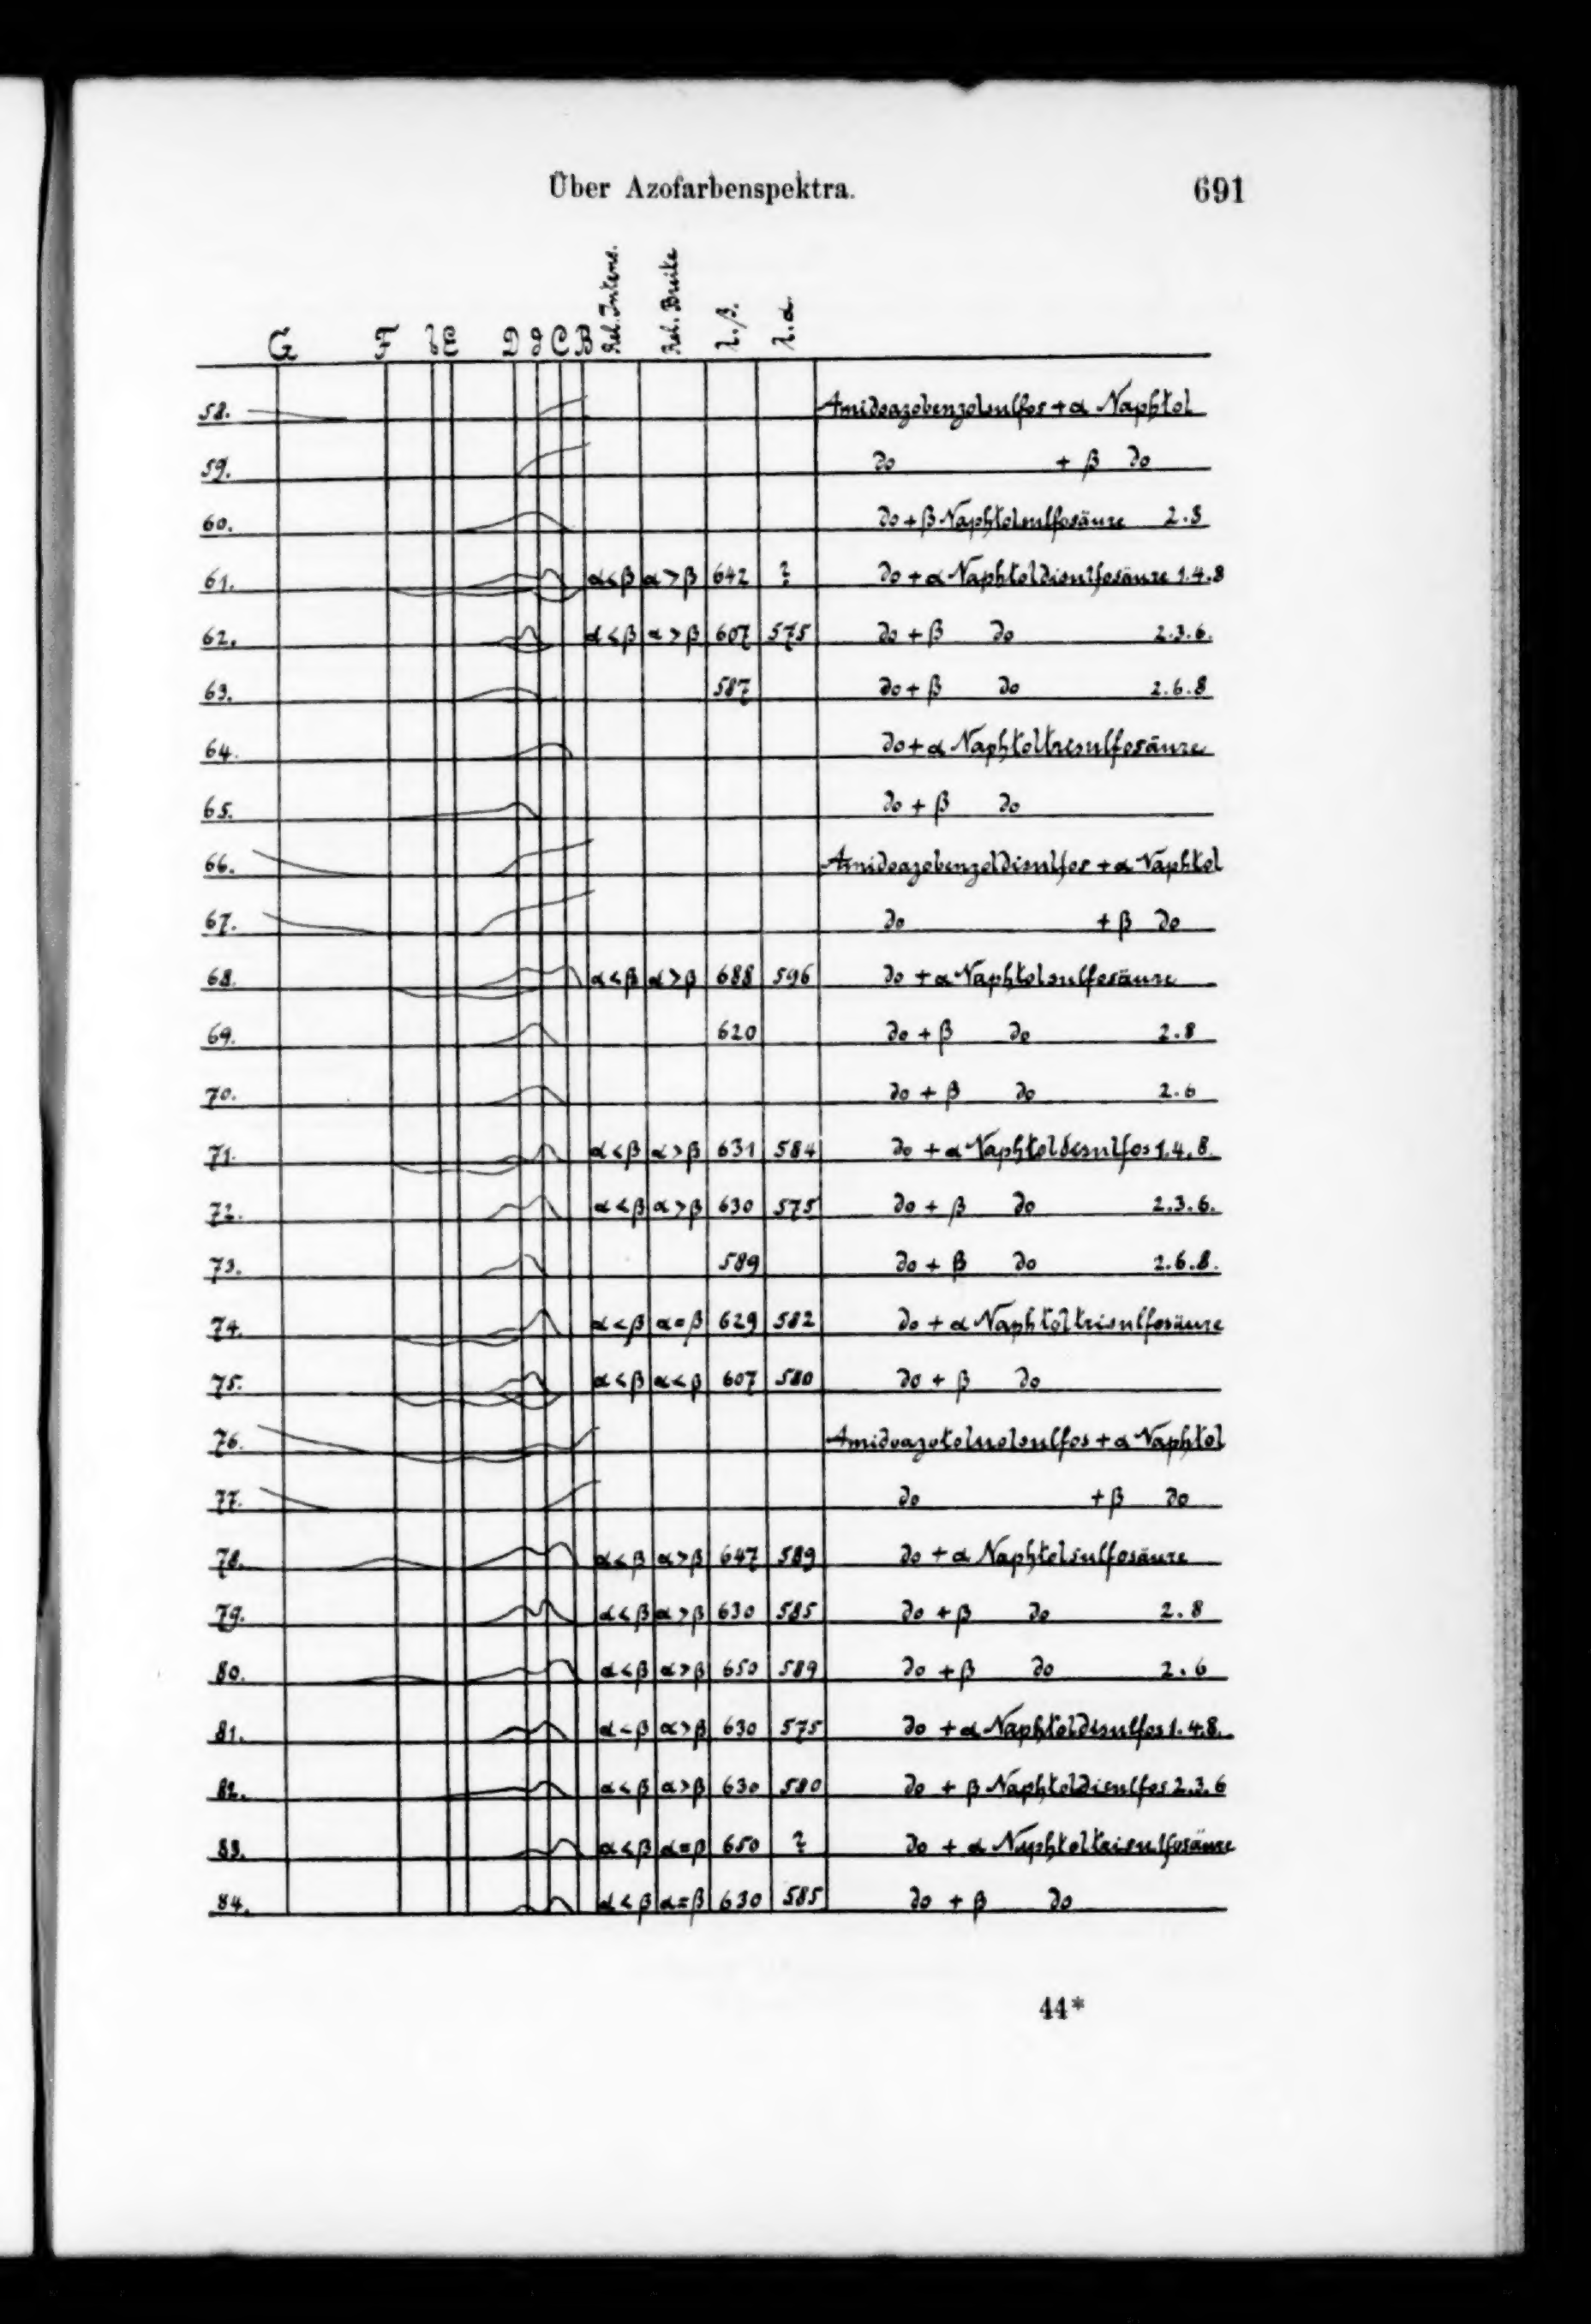 Über Azofarbenspektra. 691
G F b E D d C B Rel. Intens. Rel. Breite λ.β. λ.α.
58. Amidoazobenzolsulfos + α Naphtol
59. do + β do
60. do + β Naphtolsulfosäure 2.8
61. α<β α>β 642 ? do + α Naphtoldisulfosäure 1.4.8
62. α<β α>β 607 575 do + β do 2.3.6.
63. 587 do + β do 2.6.8
64. do + α Naphtoltrisulfosäure
65. do + β do
66. Amidoazobenzoldisulfos + α Naphtol
67. do + β do
68. α<β α>β 688 596 do + α Naphtolsulfosäure
69. 620 do + β do 2.8
70. do + β do 2.6
71. α<β α>β 631 584 do + α Naphtoldisulfos 1.4.8.
72. α<β α>β 630 575 do + β do 2.3.6.
73. 589 do + β do 2.6.8.
74. α<β α=β 629 582 do + α Naphtoltrisulfosäure
75. α<β α<β 607 580 do + β do
76. Amidoazotoluolsulfos + α Naphtol
77. do + β do
78. α<β α>β 647 589 do + α Naphtolsulfosäure
79. α<β α>β 630 585 do + β do 2.8
80. α<β α>β 650 589 do + β do 2.6
81. α<β α>β 630 575 do + α Naphtoldisulfos 1.4.8.
82. α<β α>β 630 580 do + β Naphtoldisulfos 2.3.6
83. α<β α=β 650 ? do + α Naphtoltrisulfosäure
84. α<β α=β 630 585 do + β do
44*